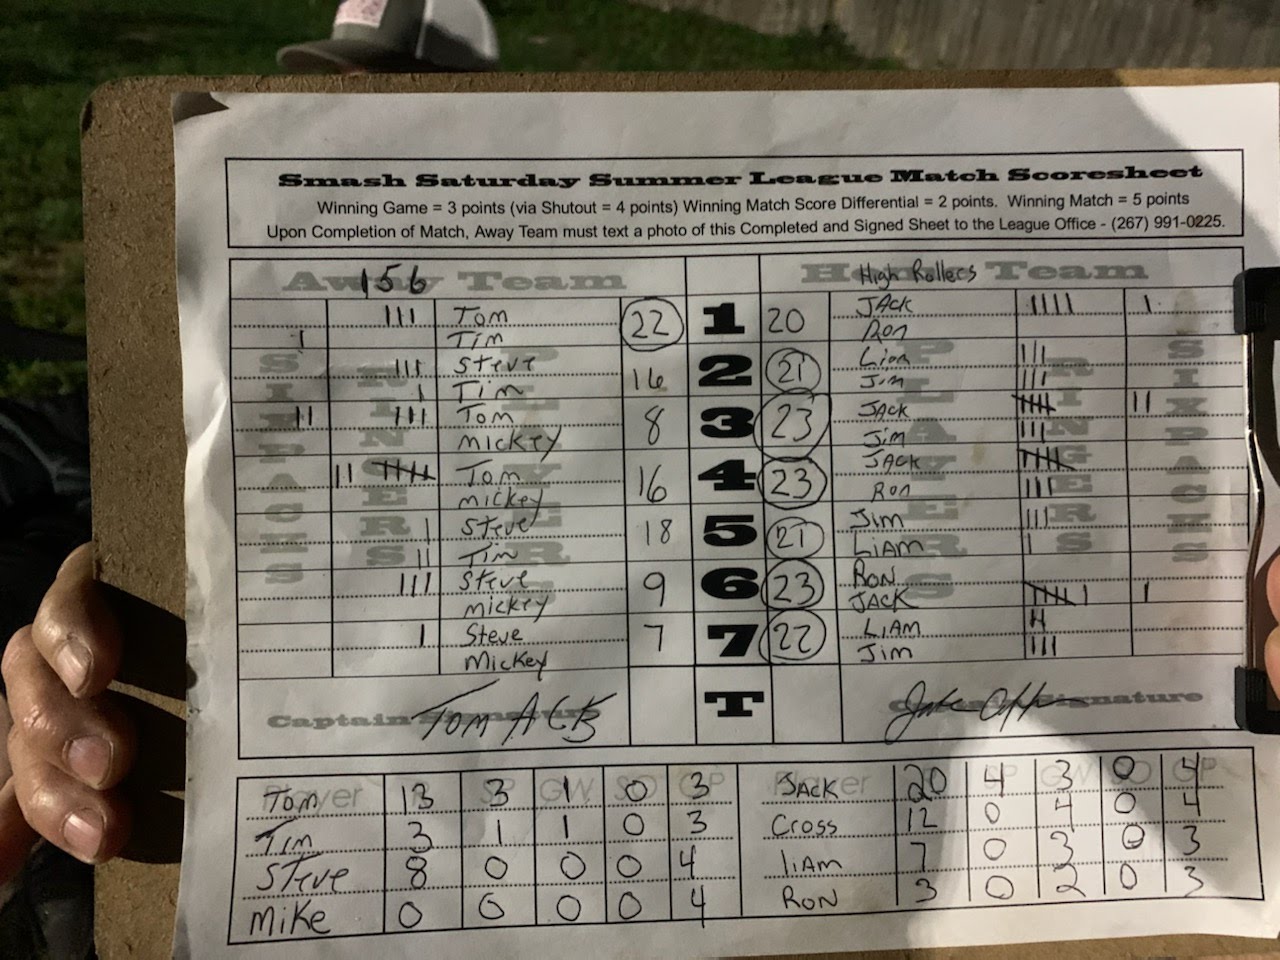 Smash Saturday Summer League Match Scoresheet
Winning Game = 3 points (via Shutout = 4 points) Winning Match Score Differential = 2 points. Winning Match = 5 points
Upon Completion of Match, Away Team must text a photo of this Completed and Signed Sheet to the League Office - (267) 991-0225.
Away Team 156 Home Team High Rollers
SIXPACKS RINGERS PLAYERS PLAYERS RINGERS SIXPACKS
III Tom 22 1 20 JACK IIII I
I Tim Ron
III Steve 16 2 21 Liam III
I Tim Jim III
II III Tom 8 3 23 JACK IIII II
Mickey Jim III
II Tom 16 4 23 JACK
mickey Ron III
I Steve 18 5 21 Jim III
II Tim LIAM I
III Steve 9 6 23 RON
mickey JACK I I
I Steve 7 7 22 LIAM II
Mickey Jim III
Captain Signature TOM ACB T Captain Signature
Player R SP GW SO GP Player R SP GW SO GP
Tom 13 3 1 0 3 JACK 20 4 3 0 4
Tim 3 1 1 0 3 Cross 12 0 4 0 4
Steve 8 0 0 0 4 liAm 7 0 3 0 3
Mike 0 0 0 0 4 RON 3 0 2 0 3